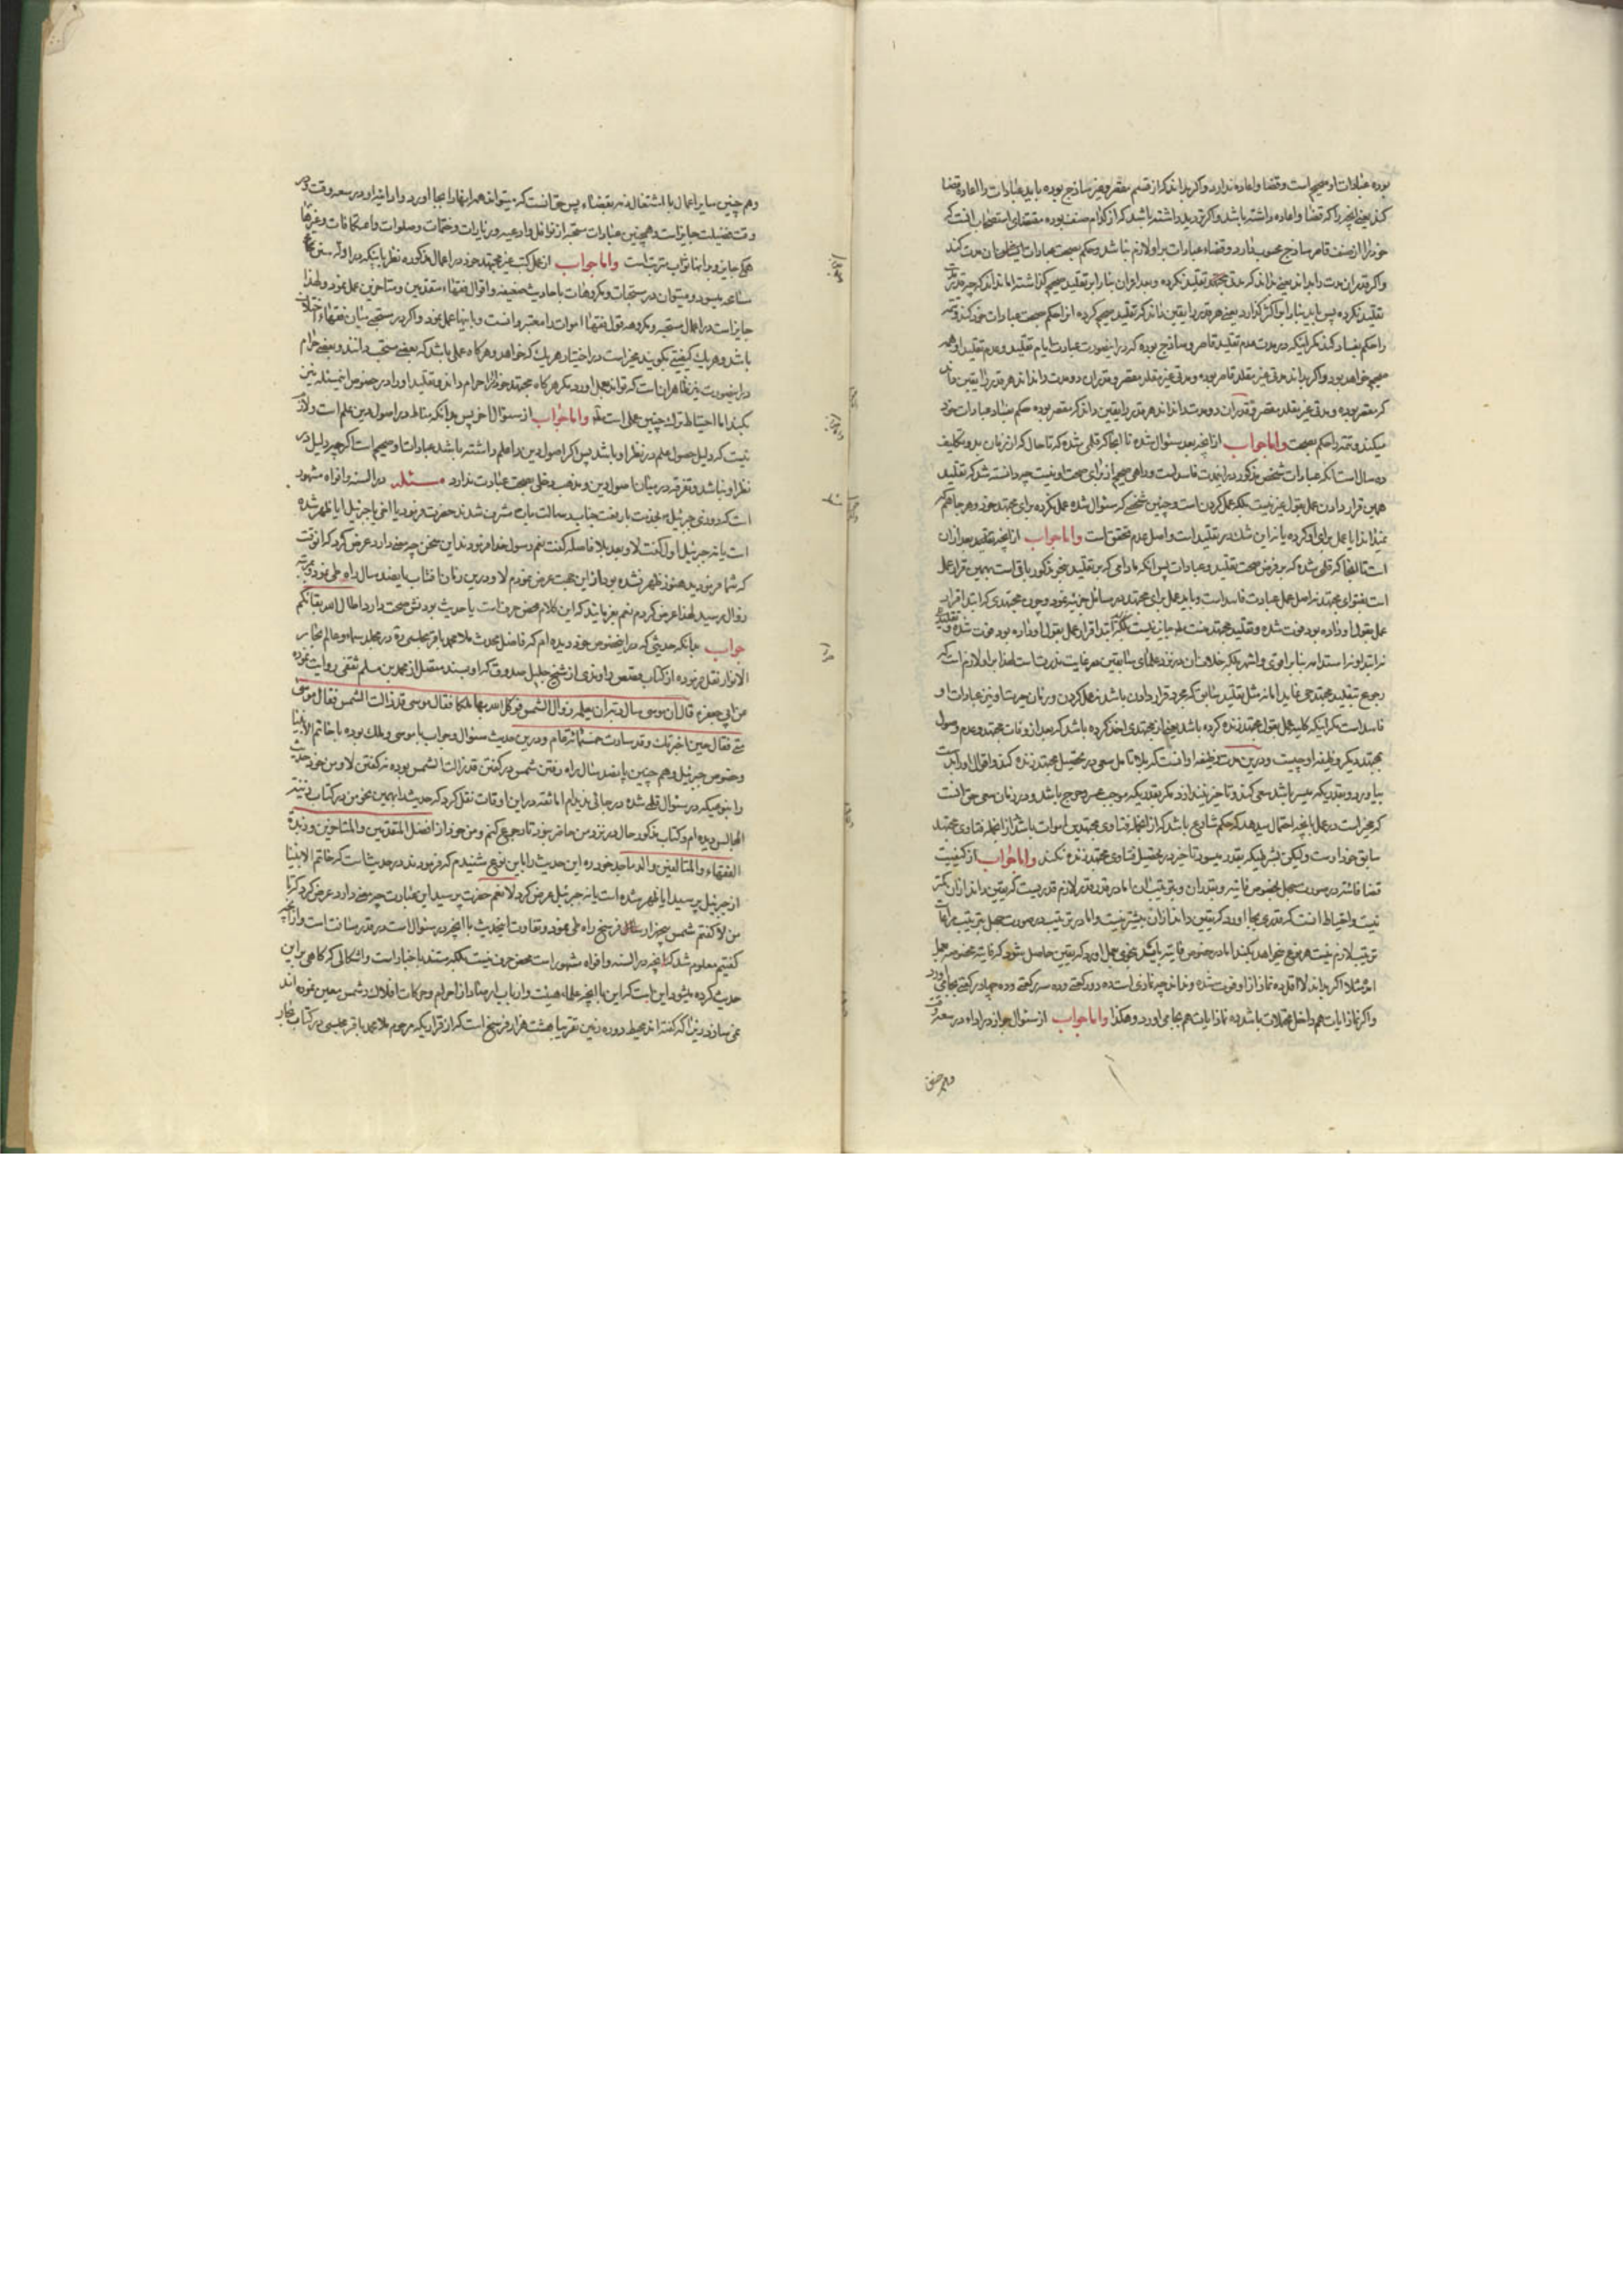 بوده عبادات او صحیح است و قضا و اعاده ندارد و اکر بداند که از قسم مقصر و غیر ساذج بوده باید عبادات را اعاده و قضا
کند یعنی آنچه را که قضا و اعاده داشته باشد و اکر تردید داشته باشد که از کدام صنف بوده مقتضای استصحاب آنست که
خود را از صنف قاصر ساذج محسوب دارد و قضاء عبادات بر او لازم نباشد و حکم بصحت عبادات
و اکر قدر آن مدت را نداند یعنی نداند که مدت تقلید نکرده و بعد از آن بنا را بر تقلید صحیح کذاشته اما نداند که چه قدر مدت
تقلید نکرده پس باید بنا را بر اکثر کذارد یعنی هر قدر را یقین داند که تقلید صحیح کرده انرا حکم بصحت عبادات خود کند و تتمه
را حکم بفساد کند مکر اینکه در مدت عدم تقلید قاصر و ساذج بوده که در اینصورت عبادت ایام تقلید و عدم تقلید او همه
صحیح خواهد بود و اکر بداند مدتی غیر مقلد قاصر بوده و مدتی غیر مقلد مقصر و قدر آن دو مدت را نداند هر قدر را یقین داند
که مقصر بوده و مدتی غیر مقلد مقصر و قدر آن دو مدت را نداند هر قدر را یقین داند که مقصر بوده حکم بفساد عبادات خود
میکند و تتمه را حکم بصحت واما جواب از آنچه بعد سؤال شده تا آنجا که قلمی شده که تا حال که از زمان بدو تکلیف
ده سال است آنکه عبادات شخص مذکور در این مدت فاسد است و راهی صحیح از برای صحت او نیست چه دانسته شد که تقلید
همین قرار دادن عمل بقول غیر نیست بلکه عمل کردن است و چنین شخصی که سئوال شده عمل نکرده برای مجتهد خود و هر جا هم که
نمیداند ایا عمل برای او کرده یا نه این شك در تقلید است و اصل عدم تحقق است واما جواب از آنچه تقلید بعد از آن
است تا آنجا که قلمی شده که بر فرض صحت تقلید و عبادات پس آنکه مادامی که بر تقلید بنحو مذکور باقی است بهمین قرار عمل
است بفتوای مجتهد نه اصل عمل عبادت فاسد است و باید عمل برای مجتهد در مسائل جزئیه نمود و چون مجتهدی که ابتدا قرار
عمل بقول او داده بود فوت شده و تقلید مجتهد میت جایز نیست
رجوع بتقلید مجتهد حی نماید اما نه مثل تقلید سابق که مجرد قرار دادن باشد نه عمل کردن
فاسد است مکر اینکه کلیة عمل بقول مجتهد زنده کرده باشد یعنی از مجتهدی اخذ کرده باشد که بعد از وفات مجتهد و عدم وصول
بمجتهد دیکر وظیفه او چیست و در این مدت وظیفه او آنست که بلا تامل سعی در تحصیل مجتهد زنده کند و اقوال او را بدست
بیاورد و بقدریکه میسر باشد سعی کند و تاخیر نیندازد مکر بقدریکه موجب عسر و حرج باشد و در زمان سعی حق آنست
که مخیر است در عمل بآنچه احتمال میدهد که حکم شارع باشد که از آنجمله فتاوی مجتهدین اموات باشد و از آنجمله فتاوی مجتهد
سابق خود اوست ولیکن بشرطیکه بقدر میسور تاخیر در تحصیل فتاوی مجتهد زنده نکند واما جواب از کیفیت
قضا فائته در صورت جهل بخصوص فایته و بقدر آن و بترتیب آن اما در قدر قدر لازم قدریست که یقین داند از آن کمتر
نیست و احتیاط آنست که بقدری بجا آورد که یقین داند از آن بیشتر نیست و اما در ترتیب در صورت جهل بترتیب مراعات
ترتیب لازم نیست هر نوع خواهد بکند اما در خصوص فایته باید بنحوی عمل آورد که یقین حاصل شود که فایته مخصوصه بعمل
آمد مثلا اکر بداند لااقل ده نماز از او فوت شده و نداند چه نمازی است ده دو رکعتی و ده سه رکعتی و ده چهار رکعتی بجا می آورد
و اکر نماز آیات هم داخل محتملات باشد ده نماز آیات هم بجا می آورد و هکذا واما جواب از سئوال جواز در اداء در سعه وقت
وهم چنین
وهم چنین سایر اعمال با اشتغال ذمه بقضاء پس حق آنست که میتواند همه اینها را بجا آورد و ادا نماید او در سعه وقت و در
وقت فضیلت جایز است و همچنین عبادات مستحبه از نوافل و ادعیه و زیارات و ختمات و صلوات و اعتکافات و غیرها
همکی جایز و بر آنها ثواب مترتب است واما جواب از عمل کتب غیر مجتهد خود در اعمال مذکوره نظر باینکه در ادله سنن
مسامحه میشود و میتوان در مستحبات و مکروهات باحادیث ضعیفه و اقوال فقهاء متقدمین و متاخرین عمل نمود و لهذا
جایز است در اعمال مستحبه و مکروهه قول فقهاء اموات را معتبر دانست و بآنها عمل نمود و اکر در مستحبی میان فقهاء اختلاف
باشد و هر یك کیفیتی بکویند مخیر است در اختیار هر یك که خواهد و هر کاه عملی باشد که بعضی مستحب دانند و بعضی حرام
در اینصورت نیز ظاهر آن است که تواند بعمل آورد مکر هر کاه مجتهد خود آنرا حرام داند و تقلید او را در خصوص این مسئله نیز
بکند اما احتیاط ترك چنین عملی است واما جواب از سئوال آخر پس بدانکه مناط در اصول دین علم است و لازم
نیست که دلیل حصول علم در نظر او باشد پس اکر اصول دین را علم داشته باشد عبادات او صحیح است اکر چه دلیل در
نظر او نباشد و تفرقه در میان اصول دین و مذهب دخلی بصحت عبادت ندارد مسئله در السنه و افواه مشهور
است که روزی جبرئیل بخدمت با رفعت جناب رسالت مآب مشرف شدند حضرت فرمود یا اخی یا جبرئیل ایا ظهر شده
است یا نه جبرئیل اول کفت لا و بعد بلا فاصله کفت نعم رسول خدا فرمودند این سخن چه معنی دارد عرض کرد که آن وقت
که شما فرمودید هنوز ظهر نشده بود از این جهت عرض نمودم لا و در این زمان آفتاب پانصد سال راه طی نمود و بمرتبه
زوال رسید لهذا عرض کردم نعم بفرمایند که این کلام محض حرف است یا حدیث بودنش صحت دارد اطال الله بقائکم
جواب بدانکه حدیثی که در این خصوص خود دیده ام که فاضل محدث ملا محمد باقر مجلسی ره در مجلد سماء و عالم بحار
الانوار نقل فرموده از کتاب قصص راوندی از شیخ جلیل صدوق که او بسند متصل از محمد بن مسلم ثقفی روایت نموده
عن ابی جعفر ع قال ان موسی سال ربه ان یعلمه زوال الشمس فوکل الله بها ملکا فقال یا موسی قد زالت الشمس فقال موسی
متی فقال حین اخبرتك وقد سارت خمسمائة عام و در این حدیث سئوال و جواب با موسی و ملك بوده نه با خاتم الانبیا
و خصوص جبرئیل و هم چنین پانصد سال راه رفتن شمس در کفتن قد زالت الشمس بوده نه کفتن لا و من خود حدیث
را بنحویکه در سئوال قلمی شده در جائی ندیدم اما ثقه در این اوقات نقل کرد که حدیث را بهمین نحو من در کتاب زینة
المجالس دیده ام و کتاب مذکور حال در نزد من حاضر نبود تا رجوع کنم و من خود از افضل المتقدمین و المتاخرین و زبدة
الفقهاء و المتألهین والد ماجد خود ره این حدیث را باین نوع شنیدم که فرمودند در حدیث است که خاتم الانبیا
از جبرئیل پرسید ایا ظهر شده است یا نه جبرئیل عرض کرد لا نعم حضرت پرسید این عبارت چه معنی دارد عرض کرد که تا
من لا کفتم شمس فرسخ راه طی نمود و تفاوت این حدیث با آنچه در سئوال است در قدر مسافت است و از آنچه
کفتیم معلوم شد که آنچه در السنه و افواه مشهور است محض حرف نیست بلکه مستند باخبار است و اشکالی که کاهی بر این
حدیث کرده میشود این است که این با آنچه علماء هیئت و ارباب ارصاد از اجرام و حرکات افلاك و شمس معین نموده اند
نمی سازد زیرا که کفته اند محیط دوره زمین تقریبا هشت هزار فرسخ است که از قراریکه مرحوم ملا محمد باقر مجلسی در کتاب بحار